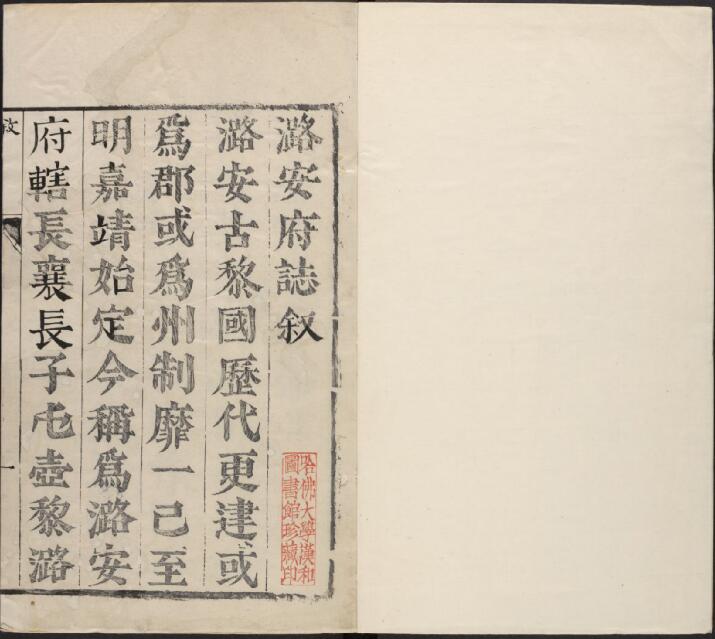 潞安府誌叙
潞安古黎國歷代更建或
爲郡或爲州制靡一己至
明嘉靖始定今稱爲潞安
府轄長襄長子屯壺黎潞
哈佛大學漢和
圖書館珍藏印
一